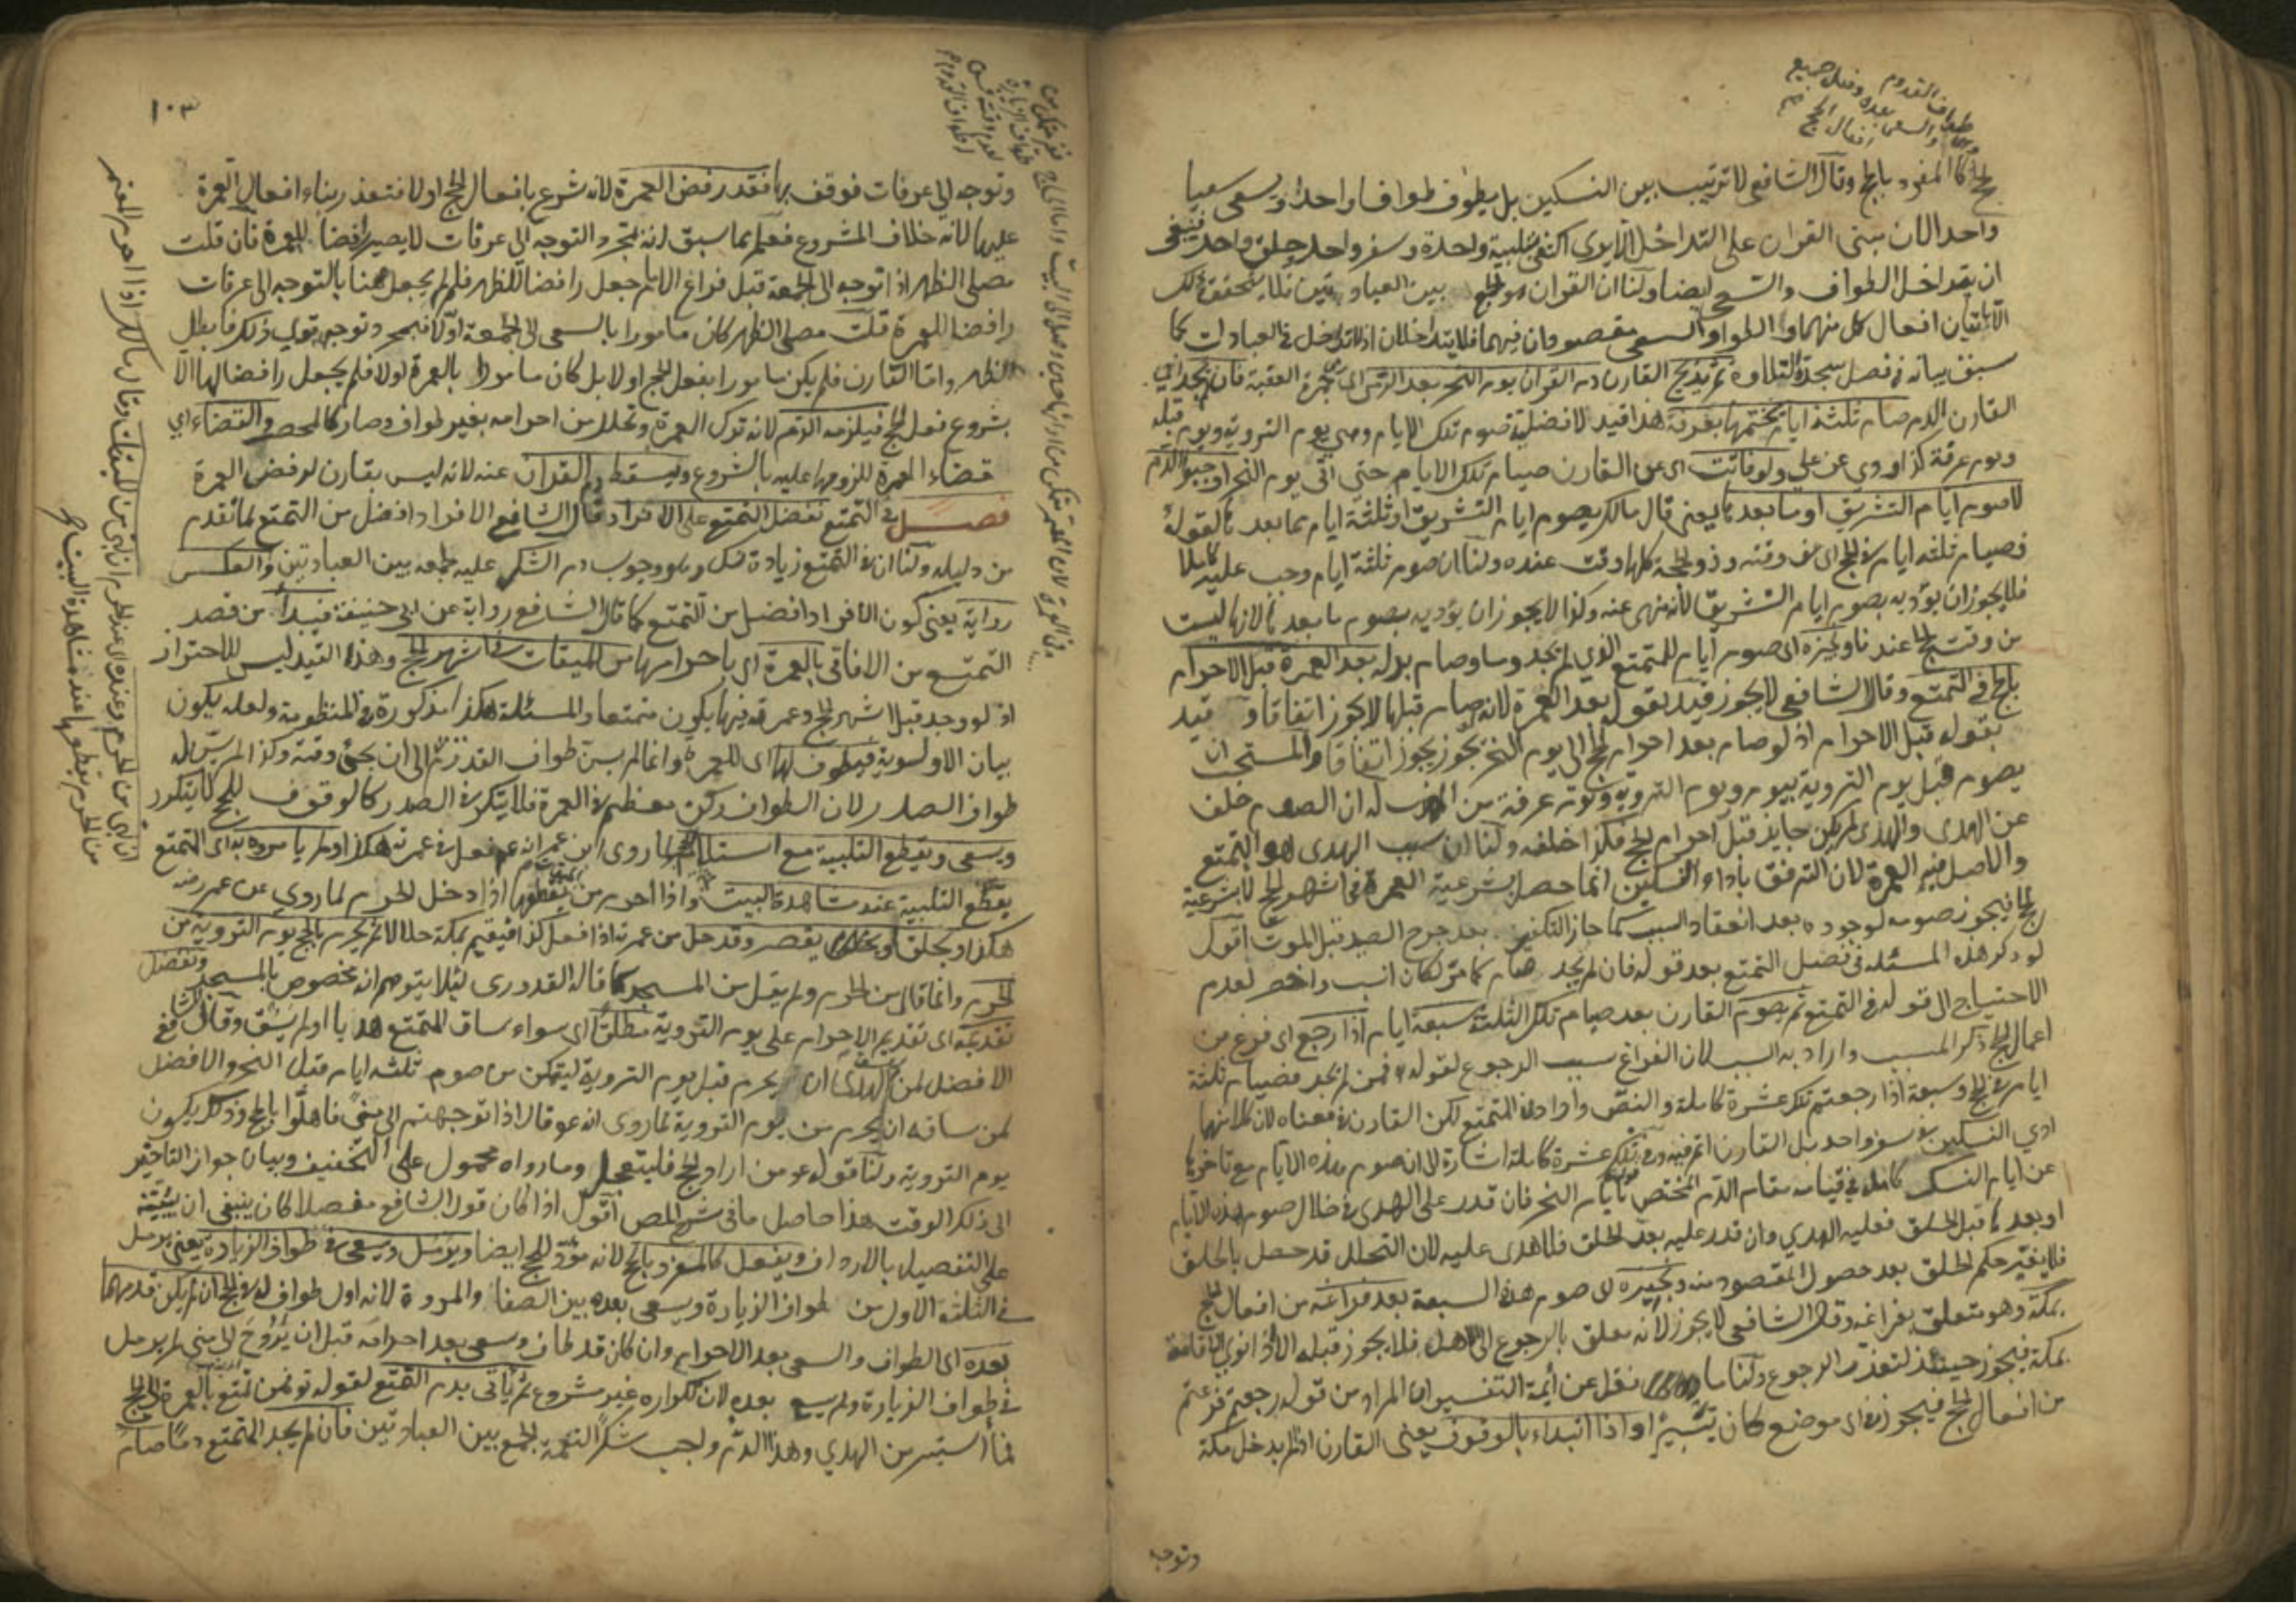 طواف القدوم
والسعي بعده وقبل جميع
افعال الحج
للحج كالمفرد بالحج وقال الشافعي لا ترتيب بين النسكين بل يطوف طوافا واحدا ويسعى سعيا
واحدا لان مبنى القران على التداخل الا يرى اكتفي بتلبية واحدة وسفر واحد وحلق واحد فينبغي
ان يتداخل الطواف والسعي ايضا ولنا ان القران هو الجمع بين العبادتين فلا يتحقق ذلك
الا باتيان افعال كل منهما والطواف والسعي مقصودان فيهما فلا يتداخلان اذ لا تداخل في العبادات كما
سبق بيانه في فصل سجدة التلاوة ثم يذبح القارن دم القران يوم النحر بعد الرمي الى جمرة العقبة فان لم يجد اي
القارن الدم صام ثلثة ايام يختمها بعرفة هذا قيد لافضلية صوم تلك الايام وهي يوم التروية ويوم قبله
ويوم عرفة كذا روي عن علي ولو فاتت اي عن القارن صيام تلك الايام حتى اتى يوم النحر اوجبوا الدم
لا صوم ايام التشريق او ما بعدها يعني قال مالك يصوم ايام التشريق او ثلثة ايام مما بعدها لقوله
فصيام ثلثة ايام في الحج اي في وقته وذو الحجة كلها وقت عنده ولنا ان صوم ثلثة ايام وجب عليه كاملا
فلا يجوز ان يؤديه بصوم ايام التشريق لانه منهي عنه وكذا لا يجوز ان يؤديه بصوم ما بعدها لانها ليست
من وقت الحج عندنا ونجيزه اي صوم ايام للمتمتع الذي لم يجد دما وصام بدله بعد العمرة قبل الاحرام
بالحج في التمتع وقال الشافعي لا يجوز قيد بقوله بعد العمرة لانه لو صام قبلها لا يجوز اتفاقا وقيد
بقوله قبل الاحرام اذ لو صام بعد احرام الحج الى يوم النحر يجوز اتفاقا والمستحب ان
يصوم قبل يوم التروية بيوم ويوم التروية ويوم عرفة له ان الصوم خلف
عن الهدي والهدي لم يكن جايز قبل احرام الحج فكذا خلفه ولنا ان سبب الهدي هو التمتع
والاصل فيه العمرة لان الترفق باداء النسكين انما حصل بشرعية العمرة في اشهر الحج لا بشرعية
الحج فيجوز صومه لوجوده بعد انعقاد السبب كما جاز التكفير بعد جرح الصيد قبل الموت اقول
لو ذكر هذه المسئلة في فصل التمتع بعد قوله فان لم يجد صام كما مر لكان انسب واخصر لعدم
الاحتياج الى قوله في التمتع ثم يصوم القارن بعد صيام تلك الثلثة سبعة ايام اذا رجع اي فرغ من
اعمال الحج ذكر المسبب واراد به السبب لان الفراغ سبب الرجوع لقوله فمن لم يجد فصيام ثلثة
ايام في الحج وسبعة اذا رجعتم تلك عشرة كاملة والنص وان ورد في المتمتع لكن القارن في معناه لان كلا منهما
ادي النسكين في سفر واحد بل القارن اتم فيه وفي تلك عشرة كاملة اشارة الى ان صوم هذه الايام مع تاخرها
عن ايام النسك كامل في قيامه مقام الدم المختص بايام النحر فان قدر على الهدي في خلال صوم هذه الايام
او بعدها قبل الحلق فعليه الهدي وان قدر عليه بعد الحلق فلا هدي عليه لان التحلل قد حصل بالحلق
فلا يغير حكم الحلق بعد حصول المقصود منه ونجيزه اي صوم هذه السبعة بعد فراغه من افعال الحج
بمكة وهو متعلق بفراغه وقال الشافعي لا يجوز لانه معلق بالرجوع الى الاهل فلا يجوز قبله الا اذا نوى الاقامة
بمكة فيجوز حينئذ لتعذر الرجوع ولنا ما نقل عن أيمة التفسير ان المراد من قوله رجعتم فرغتم
من افعال الحج فيجوز في اي موضع كان تيسيرا او اذا ابتداء بالوقوف يعني القارن اذا لم يدخل مكة
وتوجه
١٠٣
وتوجه الى عرفات فوقف بها فقد رفض العمرة لانه شرع بافعال الحج اولا فتعذر بناء افعال العمرة
عليها لانه خلاف المشروع فعلم مما سبق انه بمجرد التوجه الى عرفات لا يصير رافضا للعمرة فان قلت
مصلى الظهر اذا توجه الى الجمعة قبل فراغ الامام جعل رافضا للظهر فلم لم يجعل هنا بالتوجه الى عرفات
رافضا للعمرة قلت مصلى الظهر كان مامورا بالسعي الى الجمعة اولا فبمجرد توجهه قوي ذلك فابطل
الظهر واما القارن فلم يكن مامورا بفعل الحج اولا بل كان مامورا بالعمرة اولا فلم يجعل رافضا لها الا
بشروع فعل الحج فيلزمه الدم لانه ترك العمرة وتحلل من احرامه بغير طواف وصار كالمحصر والقضاء اي
قضاء العمرة للزومها عليه بالشروع ويسقط دم القران عنه لانه ليس بقارن لرفض العمرة
فصل في التمتع نفضل التمتع على الافراد وقال الشافعي الافراد افضل من التمتع لما تقدم
من دليله ولنا ان في التمتع زيادة نسك وهو وجوب دم الشكر عليه لجمعه بين العبادتين والعكس
رواية يعني كون الافراد افضل من التمتع كما قال الشافعي رواية عن ابي حنيفة فيبدأ من قصد
التمتع من الافاقي بالعمرة اي باحرامها من الميقات في اشهر الحج وهذا القيد ليس للاحتراز
اذ لو وجد قبل اشهر الحج وعمرته فيها يكون متمتعا والمسئلة هكذا مذكورة في المنظومة ولعله يكون
بيان الاولوية فيطوف لها اي للعمرة وانما لم يسن طواف القدوم الى ان يجئ وقته وكذا لم يسن له
طواف الصدر لان الطواف ركن معظم في العمرة فلا يتكرر في الصدر كالوقوف للحج لا يتكرر
ويسعى ويقطع التلبية مع استلام الحجر لما روى ابن عمر انه عم فعل في عمرته هكذا ولم يامروه به اي التمتع
بقطع التلبية عند مشاهدة البيت واذا احرم من التنعيم يقطعها اذا دخل الحرم لما روي عن عمر رضه
هكذا ويحلق او يقصر وقد حل من عمرته اذا فعل كذا فيقيم بمكة حلالا ثم يحرم بالحج يوم التروية من
الحرم وانما قال من الحرم ولم يقل من المسجد كما قاله القدوري لئلا يتوهم انه مخصوص بالمسجد ونفضل
تقديمه اي تقديم الاحرام على يوم التروية مطلقا اي سواء ساق المتمتع هديا او لم يسق وقال الشافعي
الافضل لمن لم يسق الهدي ان يحرم قبل يوم التروية ليتمكن من صوم ثلثة ايام قبل النحر والافضل
لمن ساقه ان يحرم من يوم التروية لما روي انه عم قال اذا توجهتم الى منى فاهلوا بالحج وذلك يكون
يوم التروية ولنا قوله عم من اراد الحج فليتعجل وما رواه محمول على التخفيف وبيان جواز التاخير
الى ذلك الوقت هذا حاصل ما في شرح المص اقول اذا كان قول الشافعي مفصلا كان ينبغي ان يبينه
على التفصيل بالارداف ويفعل كالمفرد بالحج لانه مؤد للحج ايضا ويرمل ويسعى في طواف الزيارة يعني يرمل
في الثلثة الاول من طواف الزيارة ويسعى بعده بين الصفا والمروة لانه اول طواف له في الحج ان لم يكن قدمهما
بعده اي الطواف والسعي بعد الاحرام وان كان قد طاف وسعى بعد احرامه قبل ان يروح الى منى لم يرمل
في طواف الزيارة ولم يسع بعده لان تكراره غير مشروع ثم يأتي بدم التمتع لقوله تع فمن تمتع بالعمرة الى الحج
فما استيسر من الهدي وهذا الدم واجب شكرا لنعمة الجمع بين العبادتين فان لم يجد المتمتع دما صام